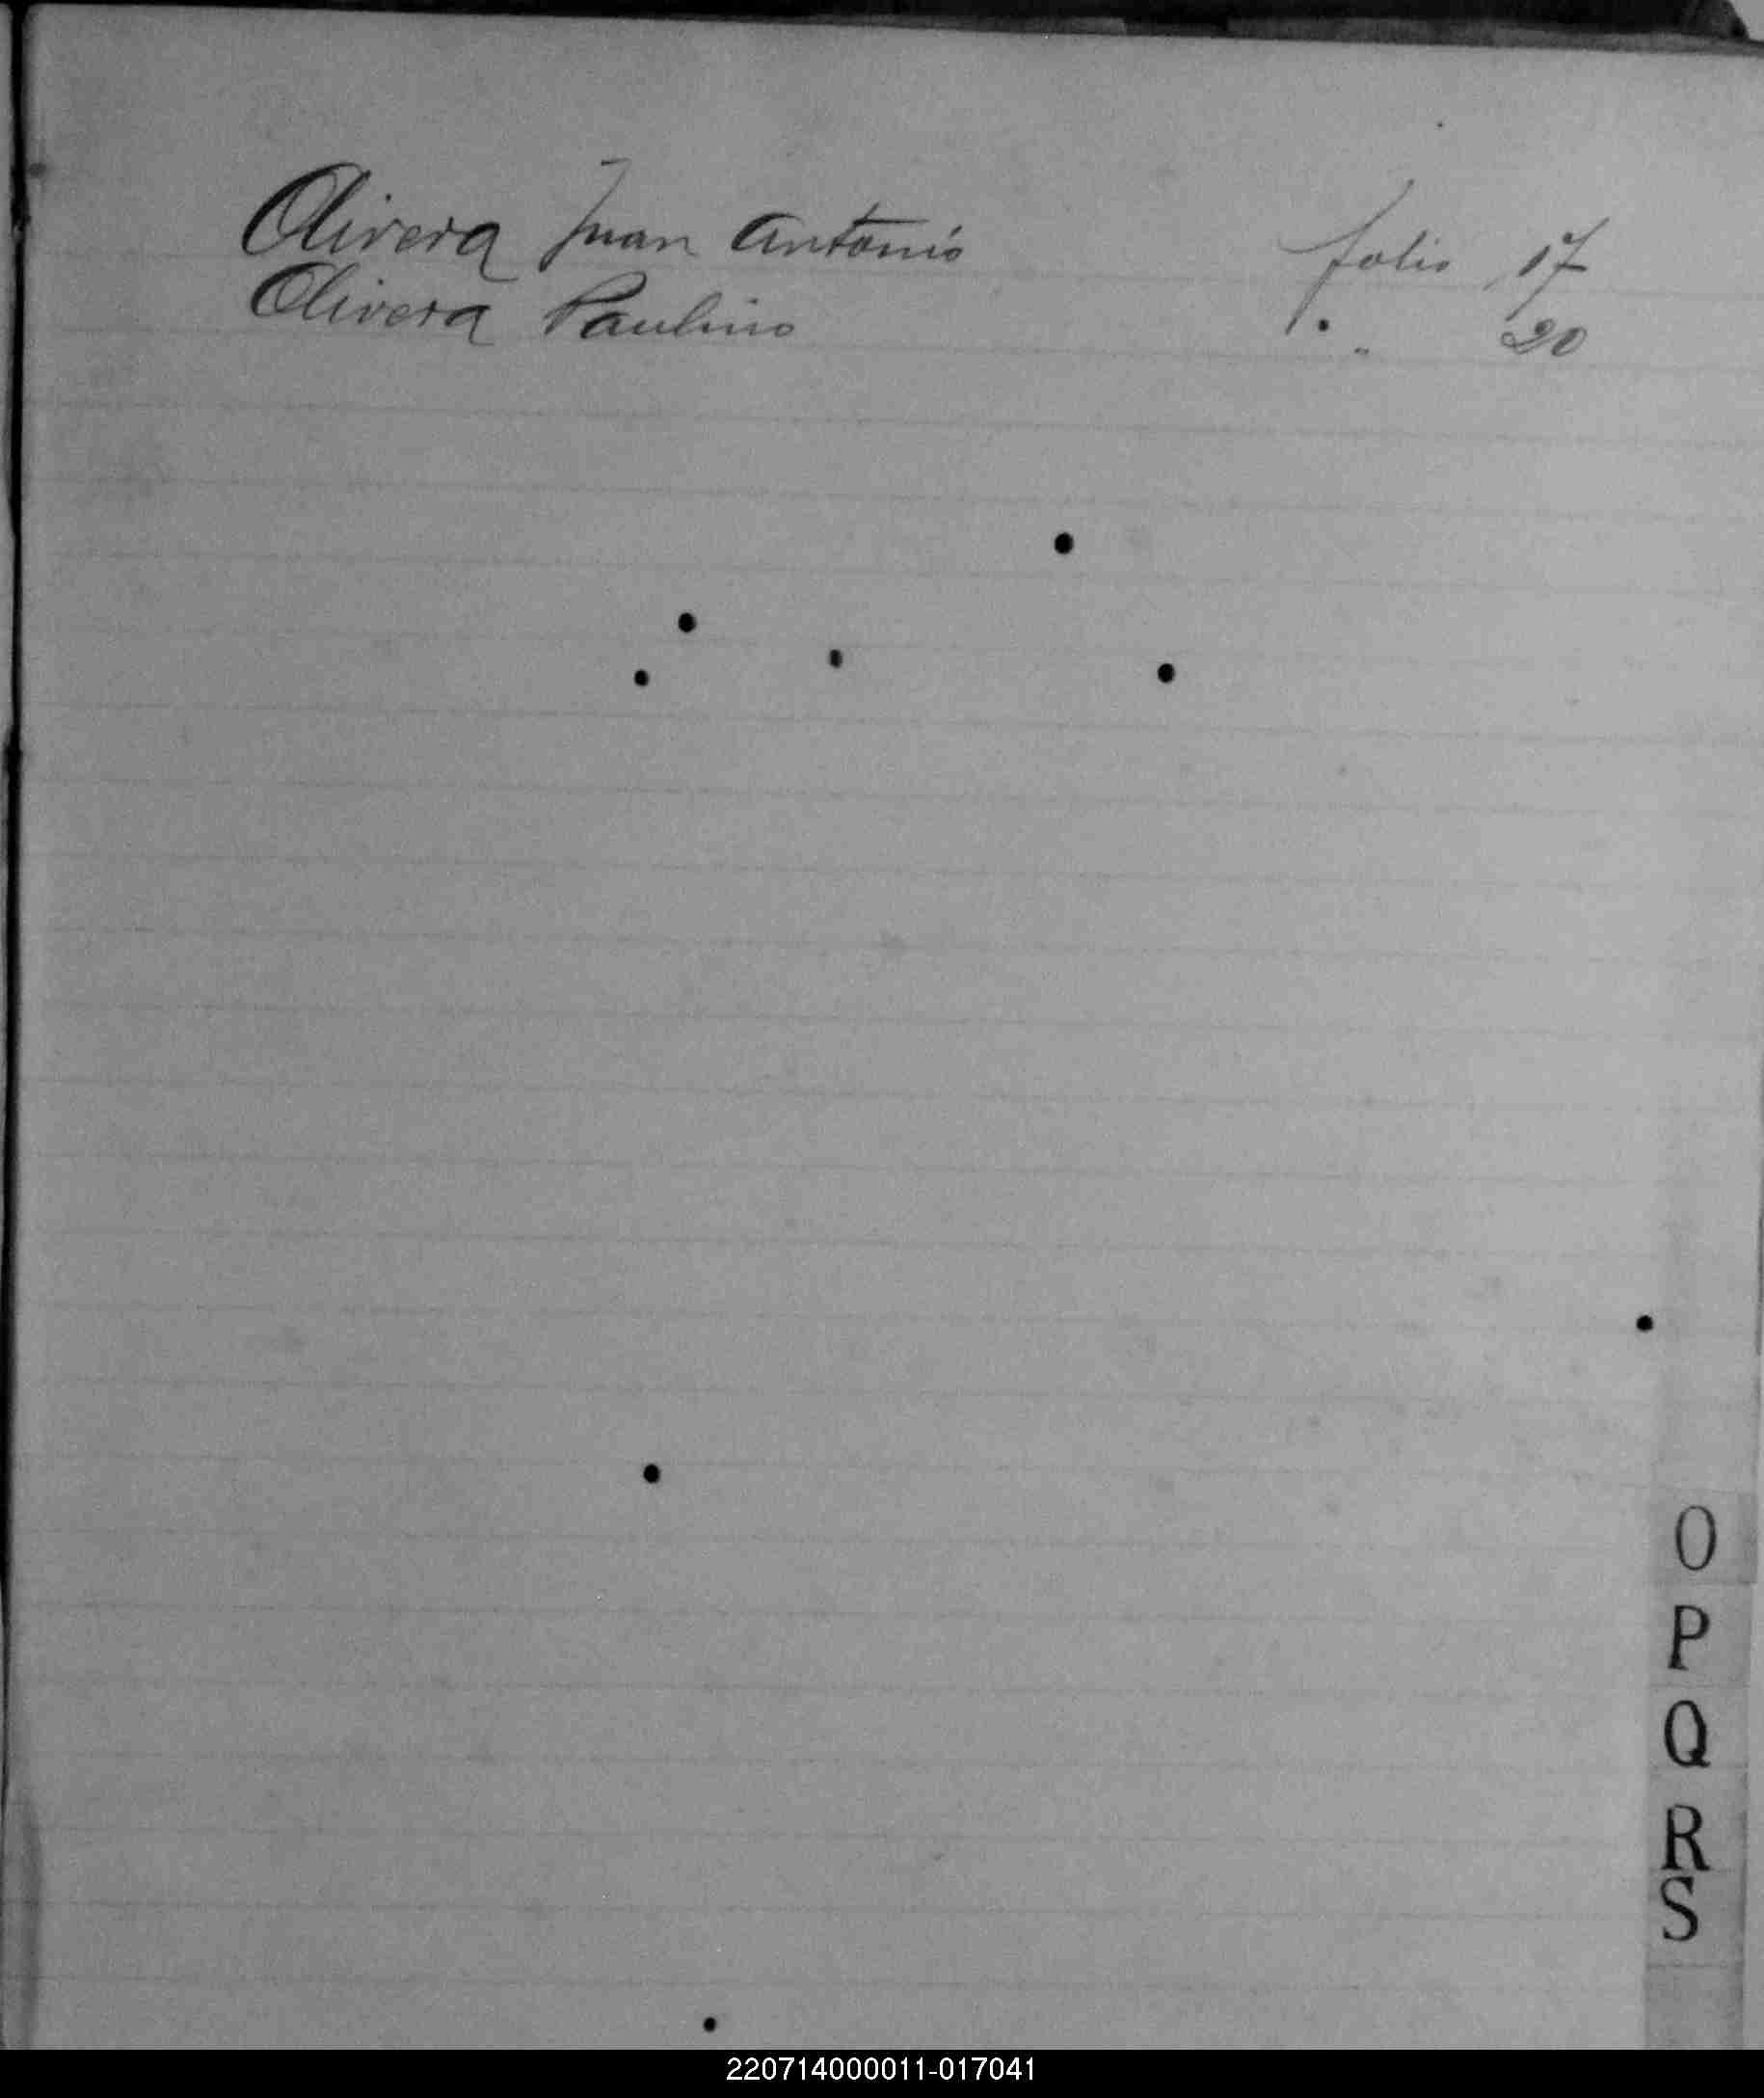 Olivera Juan Antonio folio 17
Olivera Paulino " " 20
O
P
Q
R
S
220714000011-017041